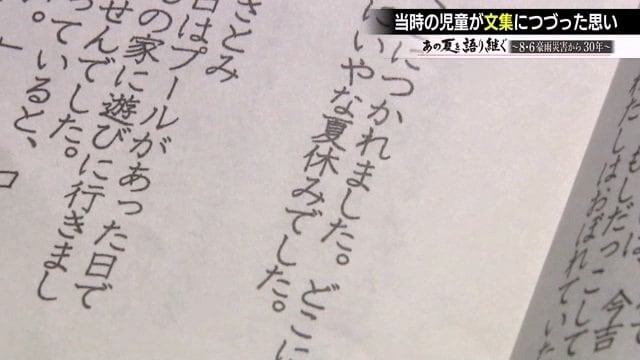 当時の児童が文集につづった思い
あの夏を語り継ぐ ~8・6豪雨災害から30年~
もしだっこして
わたしはおぼれていた
今吉
につかれました。どこに
いやな夏休みでした。
さとみ
日はプールがあった日で
の家に遊びに行きまし
せんでした。
っていると、